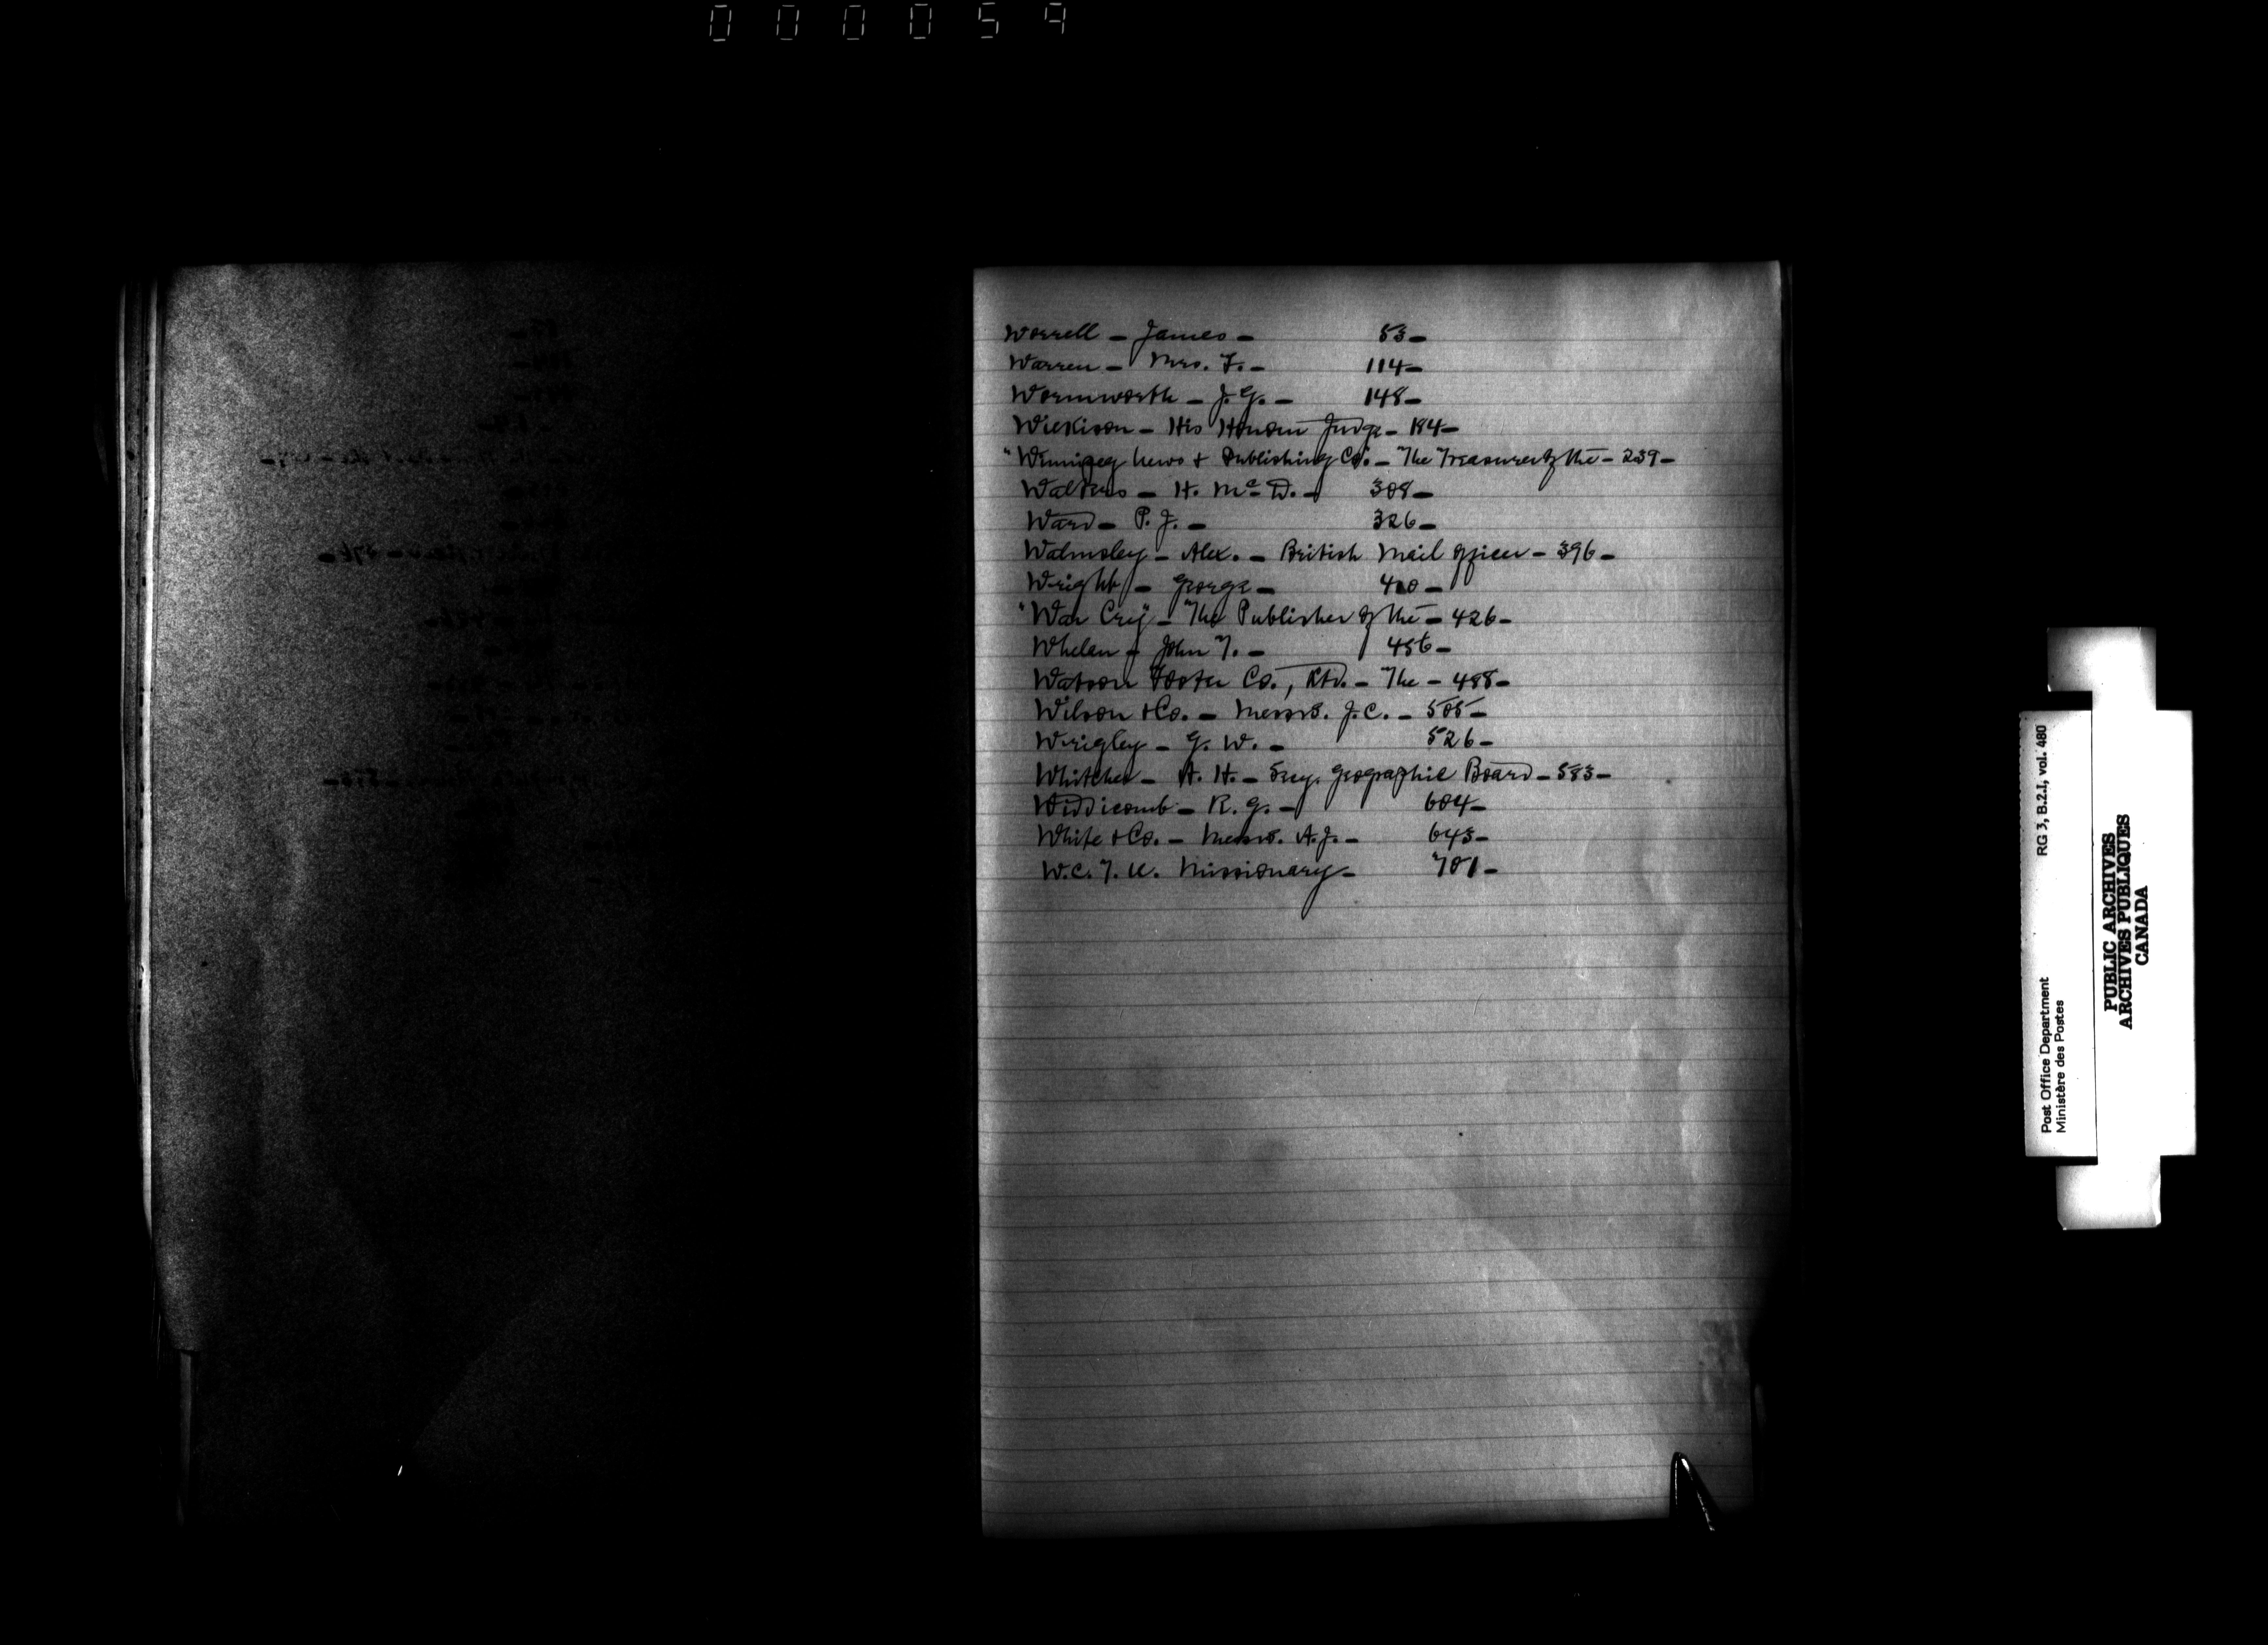 000059
Worrell - James - 53-
Warren - Mrs. F. - 114-
Wormworth - J. G. - 148-
Wilkison - His Honour Judge - 184-
"Winnipeg News & Publishing Co." - The Treasurer of the - 239-
Walters - H. McD. - 308-
Ward - P. J. - 326-
Walmsley - Alex. - British Mail Officer - 396-
Wright - George - 410-
"War Cry" - The Publisher of the - 426-
Whelan - John T. - 456-
Watson Foster Co., Ltd. - The - 488-
Wilson & Co. - Messrs. J. C. - 505-
Wrigley - G. W. - 526-
Whitcher - A. H. - Secy. Geographic Board - 583-
Widdicomb - R. G. - 604-
White & Co. - Messrs. A. J. - 643-
W. C. T. U. Missionary - 701-
Post Office Department RG 3, B.2.I, vol. 480
Ministère des Postes
PUBLIC ARCHIVES
ARCHIVES PUBLIQUES
CANADA